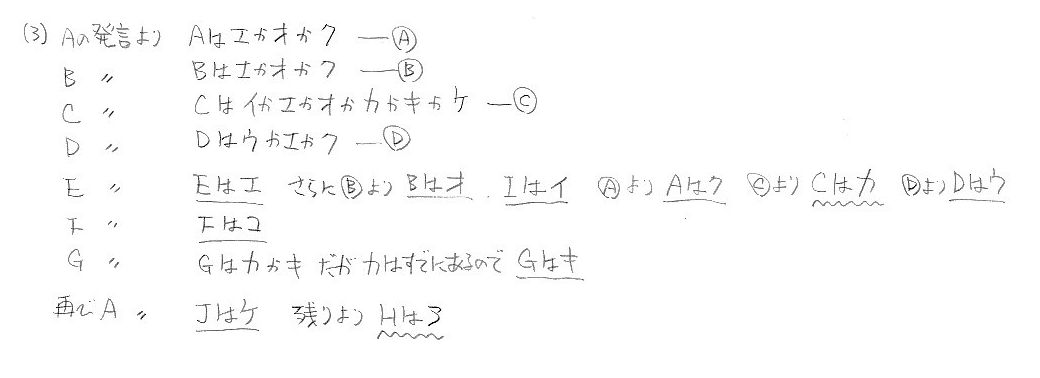 (3) Aの発言より Aはエかオかク ―Ⓐ
B 〃 Bはエかオかク ―Ⓑ
C 〃 Cはイかエかオかカかキかケ ―Ⓒ
D 〃 Dはウかエかク ―Ⓓ
E 〃 Eはエ さらにⒷより Bはオ. Iはイ Ⓐより Aはク Ⓒより Cはカ Ⓓより Dはウ
F 〃 Fはコ
G 〃 Gはカかキ だが カはすでにあるので Gはキ
再びA 〃 Jはケ 残りより Hはア